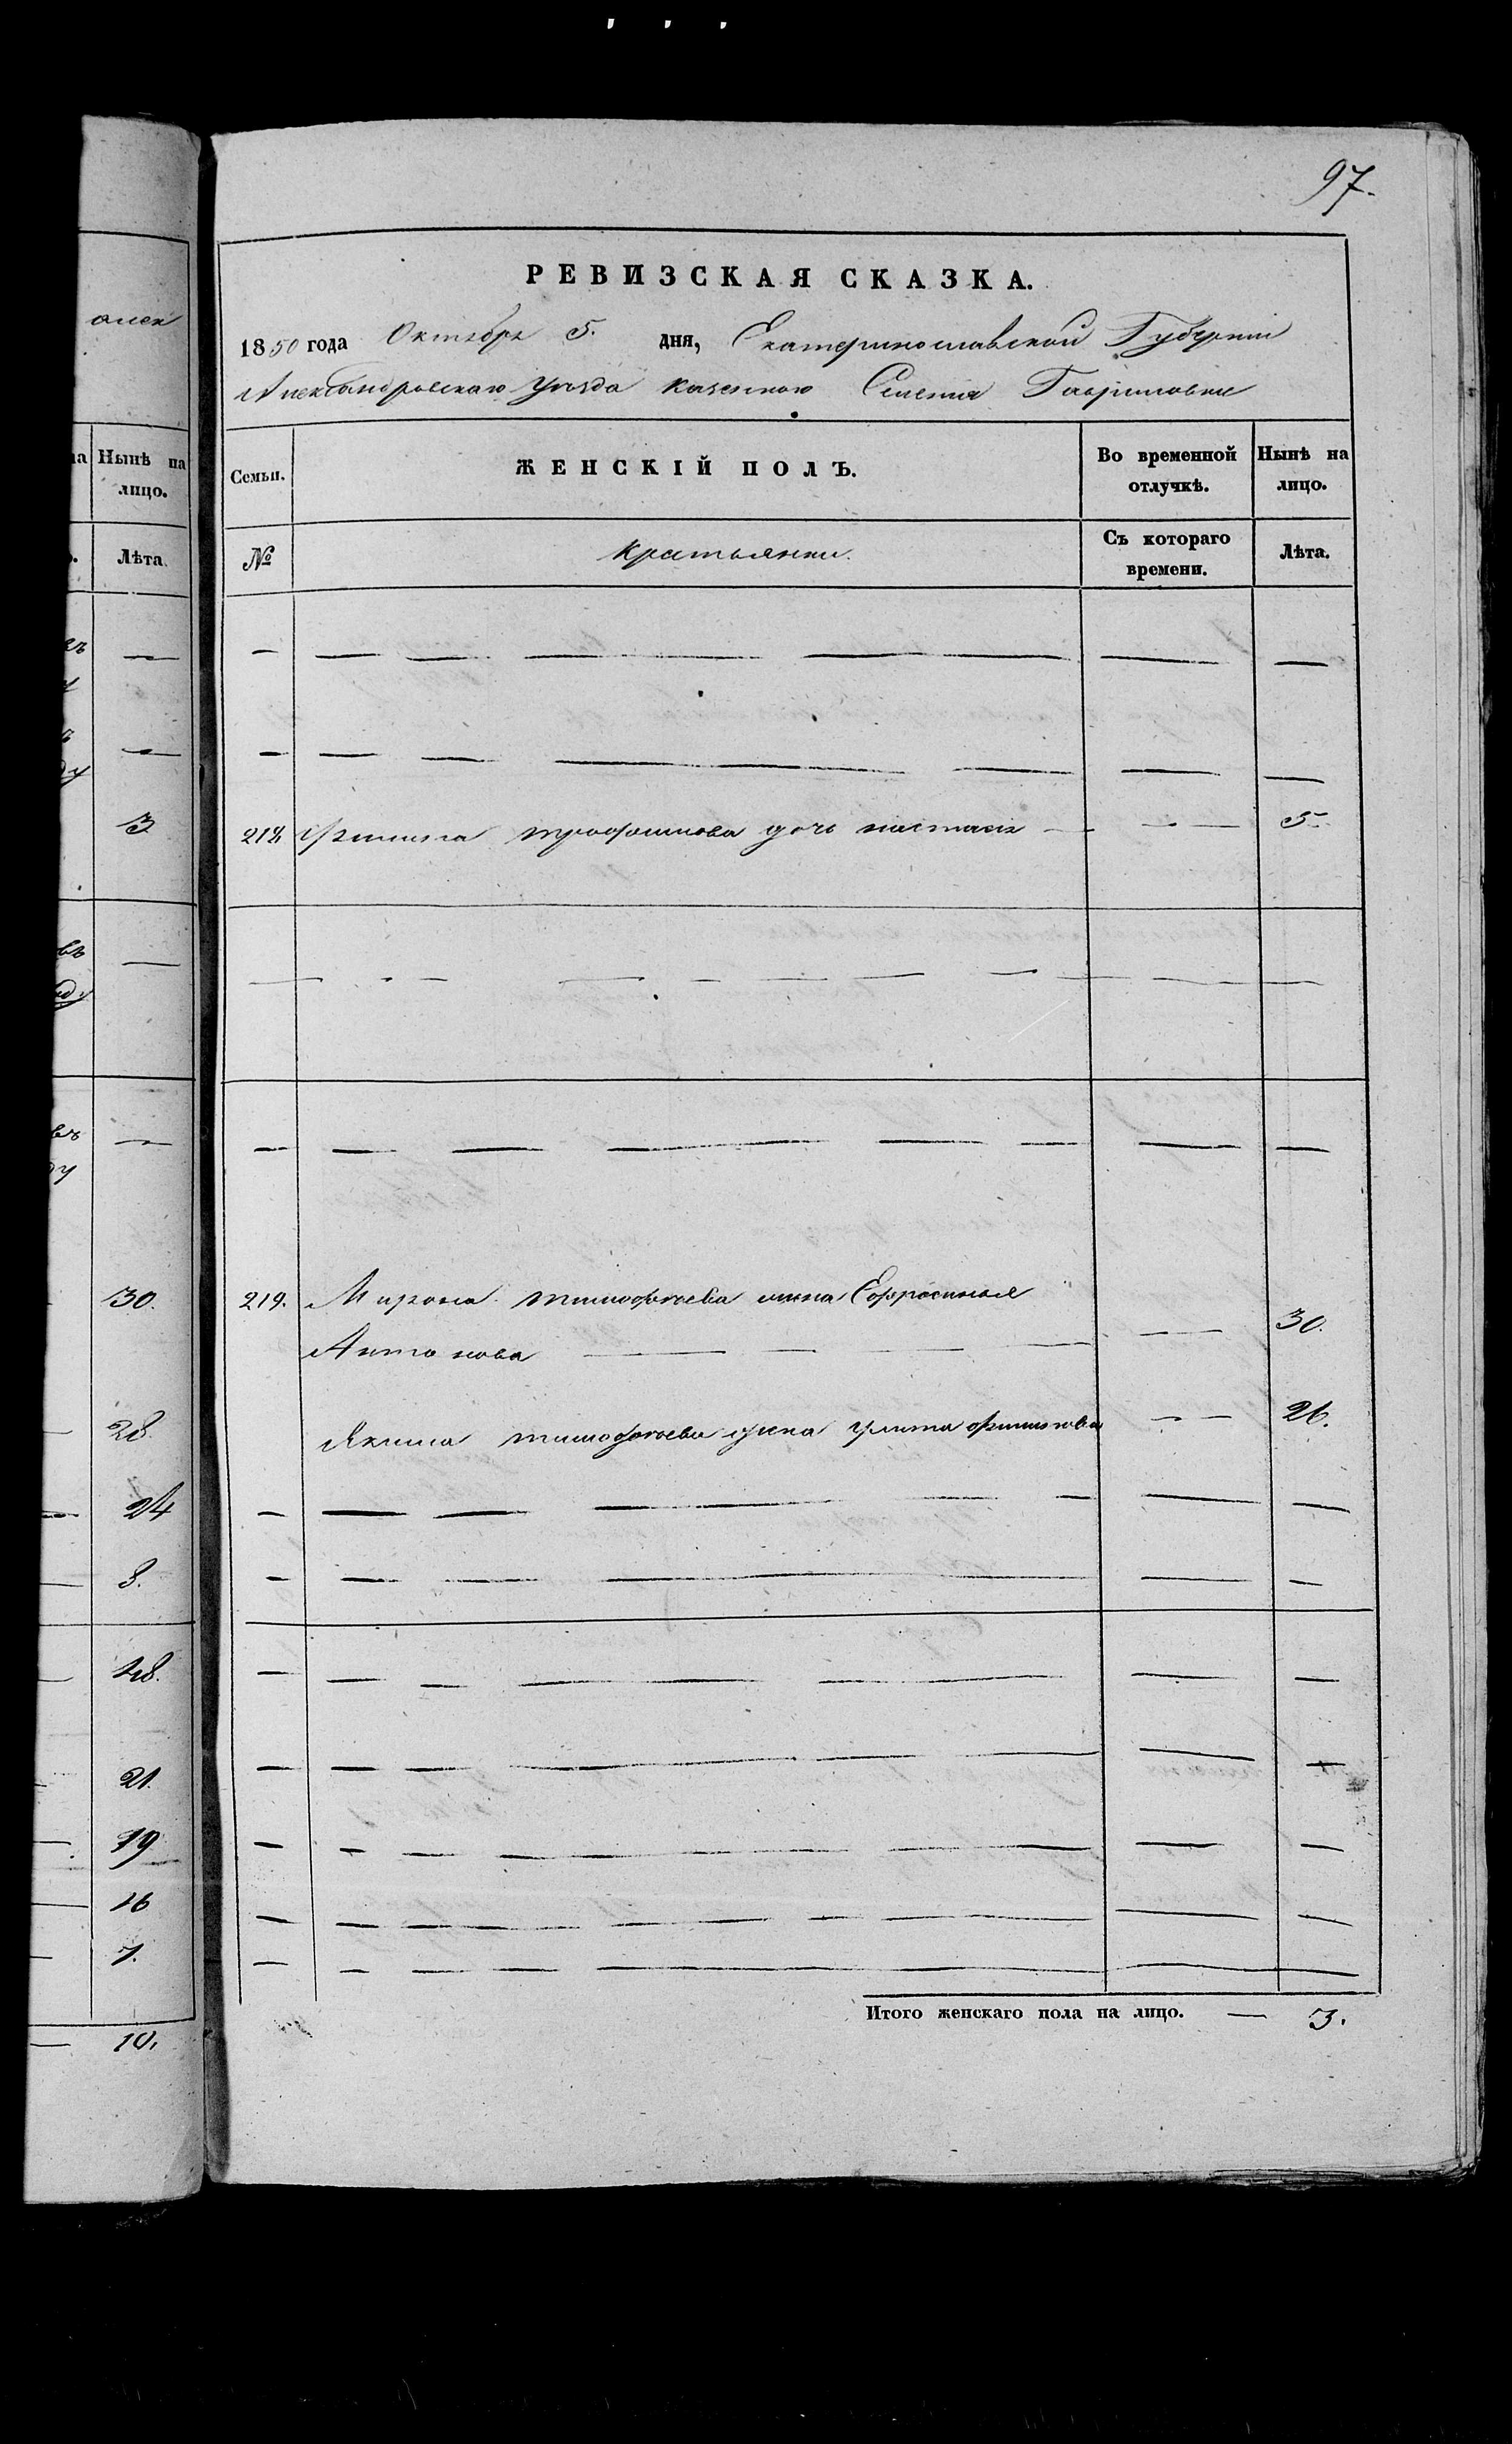 олск
на Нынѣ на
лицо.
Лѣта.
3
30.
28.
24
8.
48.
21.
19
16
7.
10.
97.
РЕВИЗСКАЯ СКАЗКА.
1850 года Октября 5. дня, Екатеринославской Губерніи
Александровскаго уѣзда казенного Селенія Гавриловки
Семьи. ЖЕНСКІЙ ПОЛЪ. Во временной отлучкѣ. Нынѣ на лицо.
№ Крестьянки. Съ котораго времени. Лѣта.
218. Филипа трофимова дочь настасія — — — 5.
219. Мирона тимофѣева жена Ефросинья
Антонова — — — — — 30.
Якима тимофѣева жена улита филипова — — 26.
Итого женскаго пола на лицо. — 3.